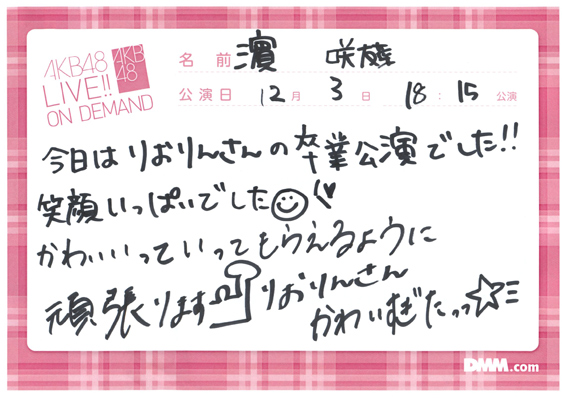 AKB48
LIVE!!
ON DEMAND
AKB
48
名前 濵 咲友菜
公演日 12月 3日 18:15 公演
今日はりおりんさんの卒業公演でした!!
笑顔いっぱいでした
かわいいっていってもらえるように
頑張ります
りおりんさん
かわいすぎたっっ☆
DMM.com